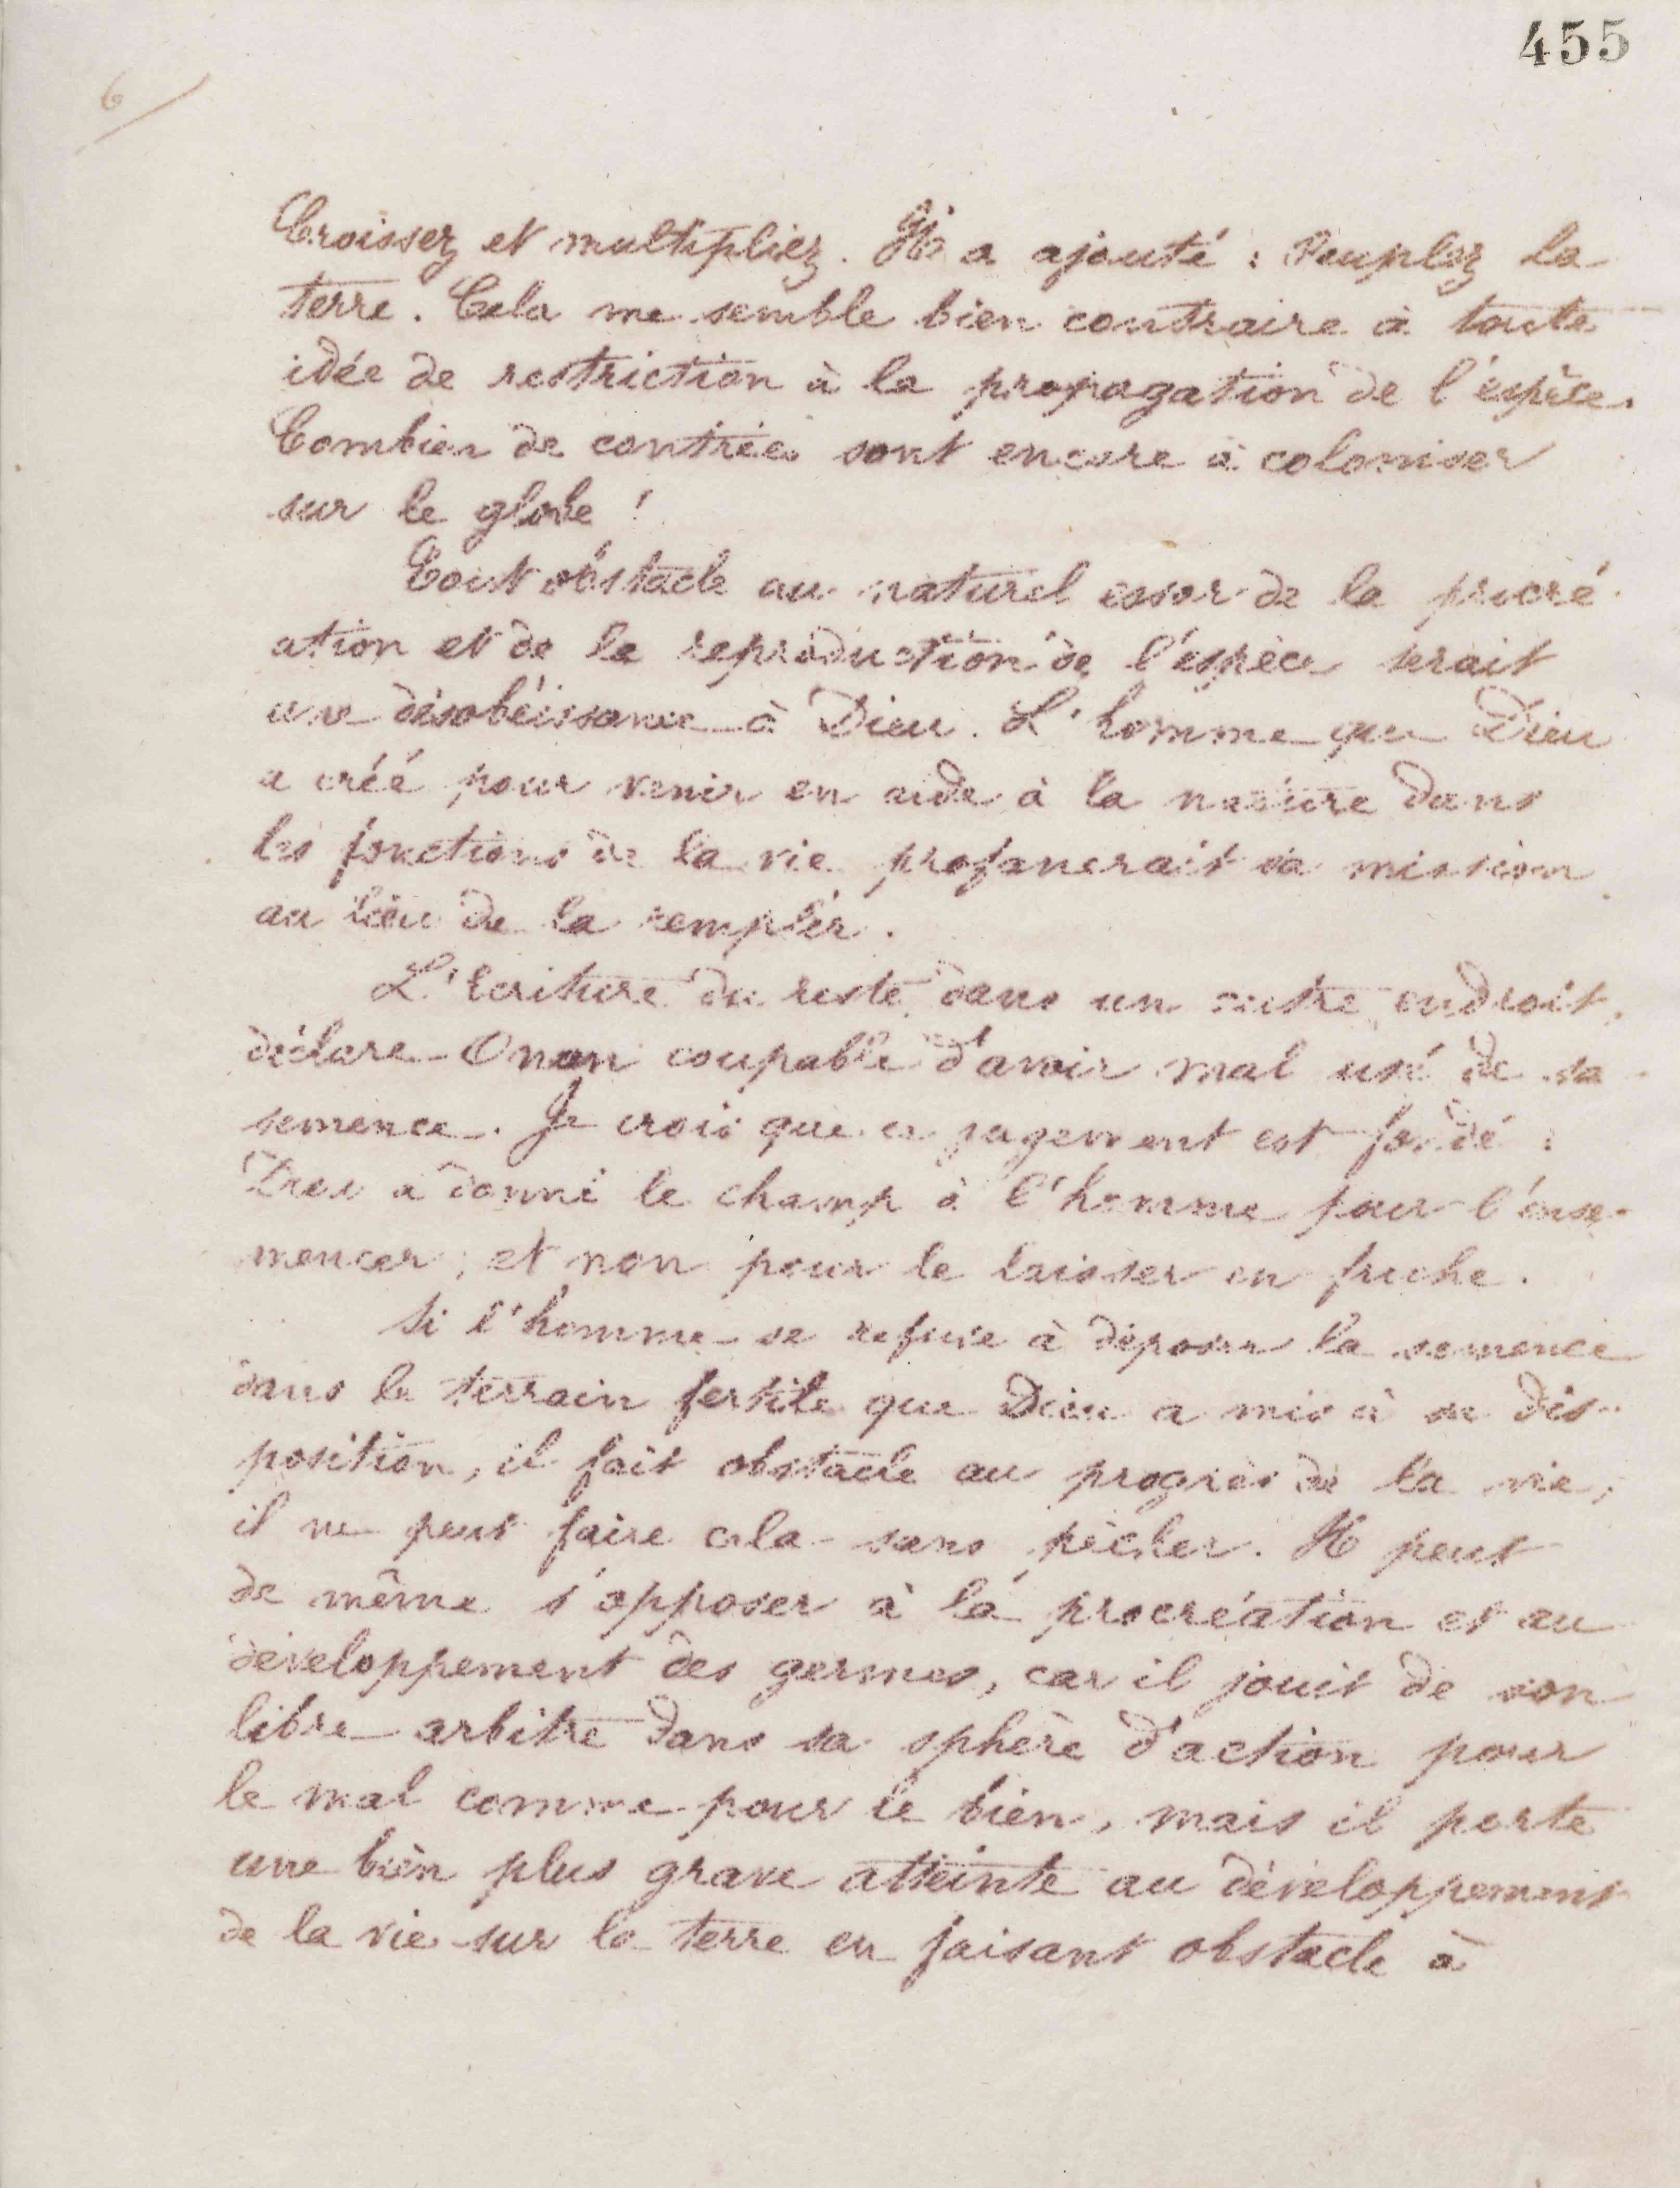 455
6
Croissez et multipliez. Il a ajouté : Peuplez la
terre. Cela me semble bien contraire à toute
idée de restriction à la propagation de l'espèce.
Combien de contrées sont encore à coloniser
sur le globe !
Tout obstacle au naturel essor de la procré
ation et de la reproduction de l'espèce serait
une désobéissance à Dieu. L'homme que Dieu
a créé pour venir en aide à la nature dans
les fonctions de la vie profanerait sa mission
au lieu de la remplir.
L'Ecriture du reste, dans un autre endroit,
déclare Onan coupable d'avoir mal usé de sa
semence. Je crois que ce jugement est fondé :
Dieu a donné le champ à l'homme pour l'ense-
mencer, et non pour le laisser en friche.
Si l'homme se refuse à déposer la semence
dans le terrain fertile que Dieu a mis à sa dis-
position, il fait obstacle au progrès de la vie,
il ne peut faire cela sans pécher. Il peut
de même s'opposer à la procréation et au
développement des germes, car il jouit de son
libre arbitre dans sa sphère d'action pour
le mal comme pour le bien, mais il porte
une bien plus grave atteinte au développement
de la vie sur la terre en faisant obstacle à